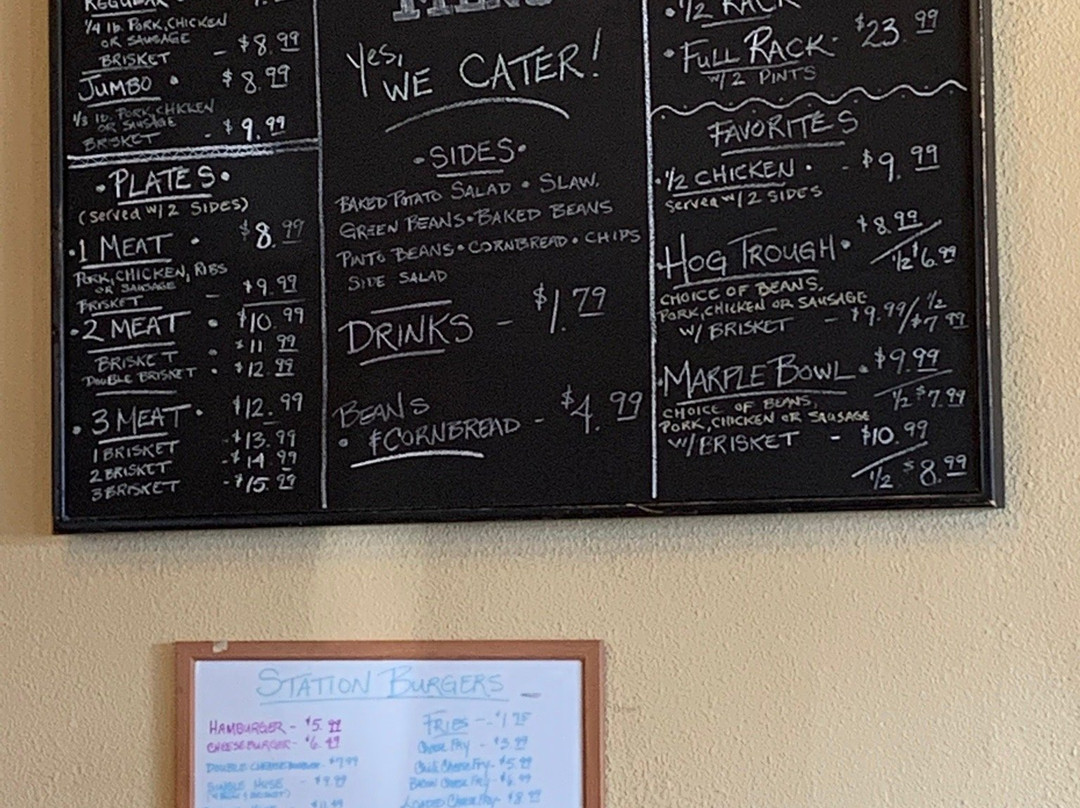 REGULAR
1/4 lb. PORK, CHICKEN
OR SAUSAGE
BRISKET - $8.99
JUMBO • $8.99
1/3 lb. PORK, CHICKEN
OR SAUSAGE
BRISKET - $9.99
• PLATES •
(Served w/2 SIDES)
• 1 MEAT • $8.99
PORK, CHICKEN, RIBS
OR SAUSAGE
BRISKET - $9.99
• 2 MEAT • $10.99
BRISKET • $11.99
DOUBLE BRISKET • $12.99
• 3 MEAT • $12.99
1 BRISKET - $13.99
2 BRISKET - $14.99
3 BRISKET - $15.99
MENU
Yes,
WE CATER!
• SIDES •
BAKED POTATO SALAD • SLAW,
GREEN BEANS • BAKED BEANS
PINTO BEANS • CORNBREAD • CHIPS
SIDE SALAD
DRINKS - $1.79
BEANS
• & CORNBREAD - $4.99
• 1/2 RACK
• FULL RACK • $23.99
w/2 PINTS
FAVORITES
• 1/2 CHICKEN • - $9.99
Served w/2 SIDES
• HOG TROUGH • $8.99
1/2 $6.99
CHOICE OF BEANS,
PORK, CHICKEN OR SAUSAGE
w/ BRISKET - $9.99/ 1/2 $7.99
• MARPLE BOWL • $9.99
1/2 $7.99
CHOICE OF BEANS,
PORK, CHICKEN OR SAUSAGE
w/ BRISKET - $10.99
1/2 $8.99
STATION BURGERS
HAMBURGER - $5.99
CHEESEBURGER - $6.49
DOUBLE CHEESEBURGER - $7.99
- $9.99
FRIES - $1.75
CHEESE FRY - $3.99
CHILI CHEESE FRY - $5.99
BACON CHEESE FRY - $6.99
LOADED CHEESE FRY - $8.99